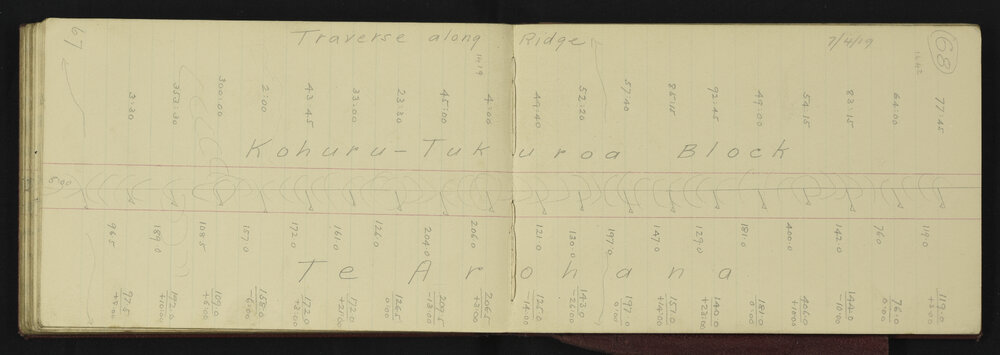 67
Traverse along Ridge
7/4/19
68
3:30
353:30
300:00
2:00
43:45
33:00
23:30
45:00
4:00
49:40
52:20
57:40
85:15
92:45
49:00
54:15
83:15
64:00
77:45
Kohuru-Tukuroa Block
5:00
96.5
189.0
108.5
157.0
172.0
161.0
126.0
204.0
206.0
121.0
130.0
197.0
147.0
129.0
181.0
400.0
142.0
76.0
119.0
Te Arohana
97.5
192.0
+10:00
109.0
158.0
-6:00
172.0
172.0
+21:00
126.5
0:00
209.5
-13:00
206.5
125.0
-14:00
143.0
-25:00
197.0
0:00
151.0
+14:00
140.0
+23:00
181.0
0:00
406.0
+10:00
144.0
-10:00
76.0
0:00
119.0